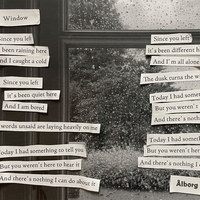 Window
Since you left
been raining here
And I caught a cold
Since you left
it's been quiet here
And I am bored
words unsaid are laying heavily on me
Today I had something to tell you
But you weren't here to hear it
And there's nothing I can do about it
Since you left
it's been different
And I'm all alone
The dusk turns the
Today I had some
But you weren't
And there's
Today I had
But you weren't
And there's nothing
Ålborg